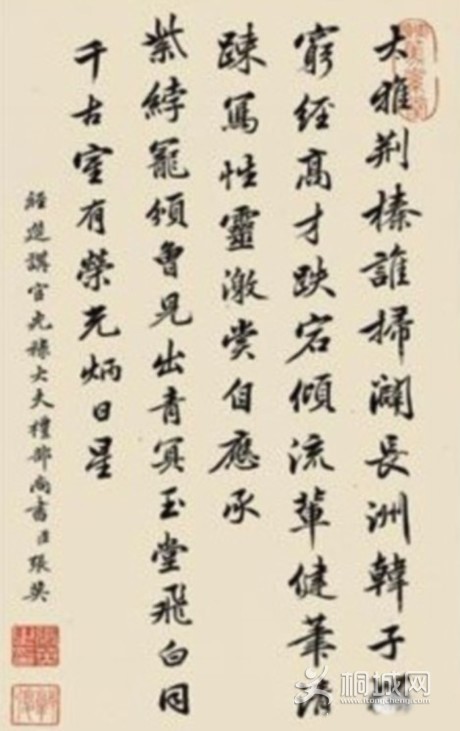 大雅荊榛誰掃闢長洲韓子
窮經高才跌宕傾流輩健筆清
疎寫性靈激賞自應承
紫綍寵頒曾見出青冥玉堂飛白同
千古室有榮光炳日星
經筵講官光祿大夫禮部尚書臣張英
桐城网
www.itongcheng.com